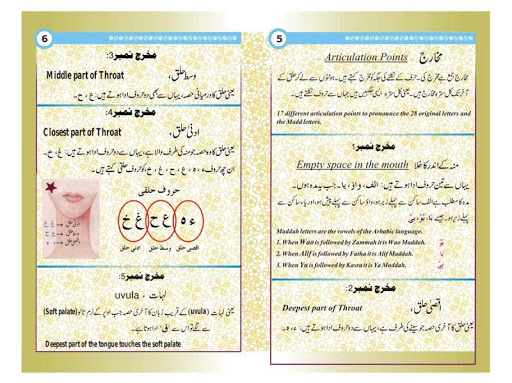 5
مخارج Articulation Points
مخارج جمع ہے مخرج کی۔ حرف کے نکلنے کی جگہ کو مخرج کہتے ہیں۔ ہونٹوں سے لے کر حلق کے
آخر تک کل سترہ مخارج ہیں۔ یعنی کل سترہ ایسی جگہیں ہیں جہاں سے حروف نکلتے ہیں۔
17 different articulation points to pronounce the 28 original letters and
the Madd letters.
مخرج نمبر1
منہ کے اندر کا خلا Empty space in the mouth
یہاں سے تین حروف ادا ہوتے ہیں: الف، واؤ، یا۔ جب یہ مدہ ہوں۔
مدہ کا مطلب ہے الف ساکن سے پہلے زبر ہو، واؤ ساکن سے پہلے پیش ہو، اور یاء ساکن سے
پہلے زیر ہو۔ جیسے
Maddah letters are the vowels of the Arbabic language.
1. When Wao is followed by Zammah it is Wao Maddah.
2. When Alif is followed by Fatha it is Alif Maddah.
3. When Ya is followed by Kasra it is Ya Maddah.
مخرج نمبر2:
اقصیٰ حلق، Deepest part of Throat
یعنی حلق کا آخری حصہ جو سینے کی طرف ہے، یہاں سے دو حروف ادا ہوتے ہیں: ء، ہ۔
6
مخرج نمبر3:
وسط حلق، Middle part of Throat
یعنی حلق کا درمیانی حصہ، یہاں سے بھی دو حروف ادا ہوتے ہیں: ع، ح۔
مخرج نمبر4:
ادنیٰ حلق، Closest part of Throat
یعنی حلق کا وہ حصہ جو منہ کی طرف والا ہے، یہاں سے دو حروف ادا ہوتے ہیں: غ، خ۔
ان چھ حروف ء، ہ، ع، ح، غ، خ، کو حروف حلقی کہتے ہیں۔
حروف حلقی
ء ہ ع ح غ خ
اقصی حلق وسط حلق ادنی حلق
ادنی حلق غ خ
وسط حلق ع ح
اقصی حلق ء ہ
مخرج نمبر5:
لہات، uvula
یعنی لہات (uvula) کے قریب زبان کا آخری حصہ جب اوپر کے نرم تالو (Soft palate)
سے لگے تو اس سے "ق" ادا ہوتا ہے۔
Deepest part of the tongue touches the soft palate